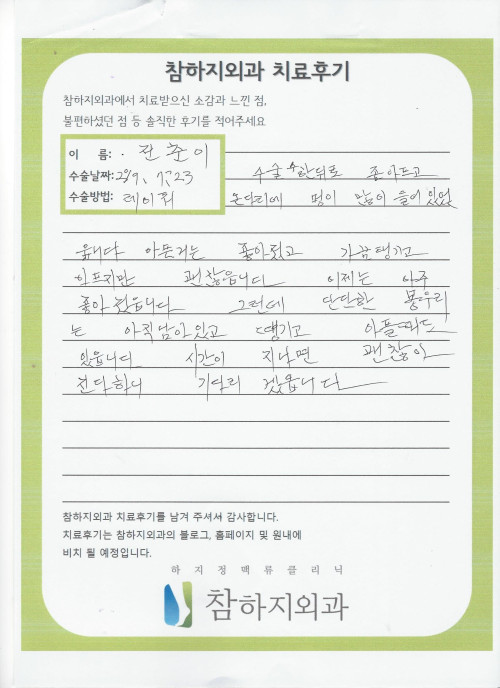 참하지외과 치료후기
참하지외과에서 치료받으신 소감과 느낀 점,
불편하셨던 점 등 솔직한 후기를 적어주세요
이 름: 전춘이
수술날짜: 2019、 7、23
수술방법: 레이저
수술 수한뒤로 좀아프고
온다리에 멍이 많이 들어 있었
읍니다 아픈거는 좋아 젔고 가끔 땡기고
하프지만 괜찮읍니다 이제는 아주
좋아 젔읍니다 그런데 단단한 봉우리
는 아직 남아있고 땡기고 아플때도
있읍니다 시간이 지나면 괜찮아
진다하니 기다리 겠읍니다
참하지외과 치료후기를 남겨 주셔서 감사합니다.
치료후기는 참하지외과의 블로그, 홈페이지 및 원내에
비치 될 예정입니다.
하지정맥류클리닉
참하지외과